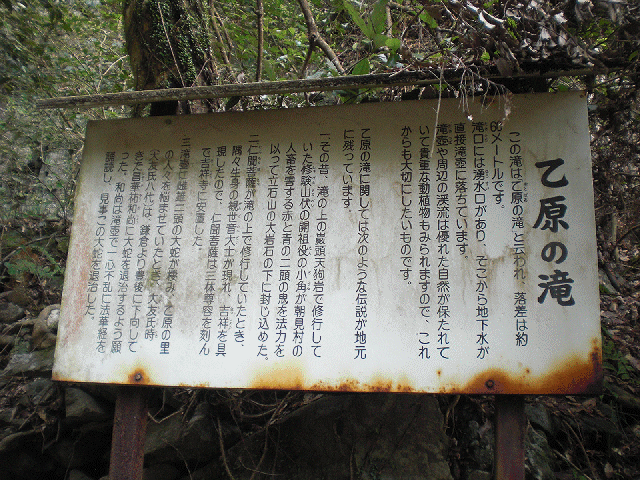 乙原の滝
この滝は乙原の滝と云われ、落差は約
60メートルです。
滝口には湧水口があり、そこから地下水が
直接滝壺に落ちています。
滝壺や周辺の渓流は優れた自然が保たれて
いて貴重な動植物もみられますので、これ
からも大切にしたいものです。
乙原の滝に関しては次のような伝説が地元
に残っています。
一、その昔、滝の上の巌頭天狗岩で修行して
いた修験山伏の開祖役の小角が朝見村の
人畜を害する赤と青の二頭の鬼を法力を
以って立石山の大岩石の下に封じ込めた。
二、仁聞菩薩が滝の上で修行していたとき、
隅々生身の観世音大士が現れ、吉祥を具
現したので、仁聞菩薩は三体尊容を刻ん
で吉祥寺に安置した。
三、滝壺に雌雄二頭の大蛇が棲み、乙原の里
の人々を悩ませていたとき、大友氏時
(大友氏八代)は、鎌倉より豊後に下向して
きた昌華祐和尚に大蛇を退治するよう願
った。和尚は滝壺で一心不乱に法華経を
読誦し、見事この大蛇を退治した。